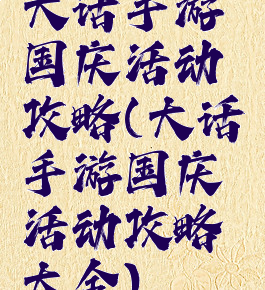 大话手游
国庆活动
攻略(大话
手游国庆
活动攻略
大全)